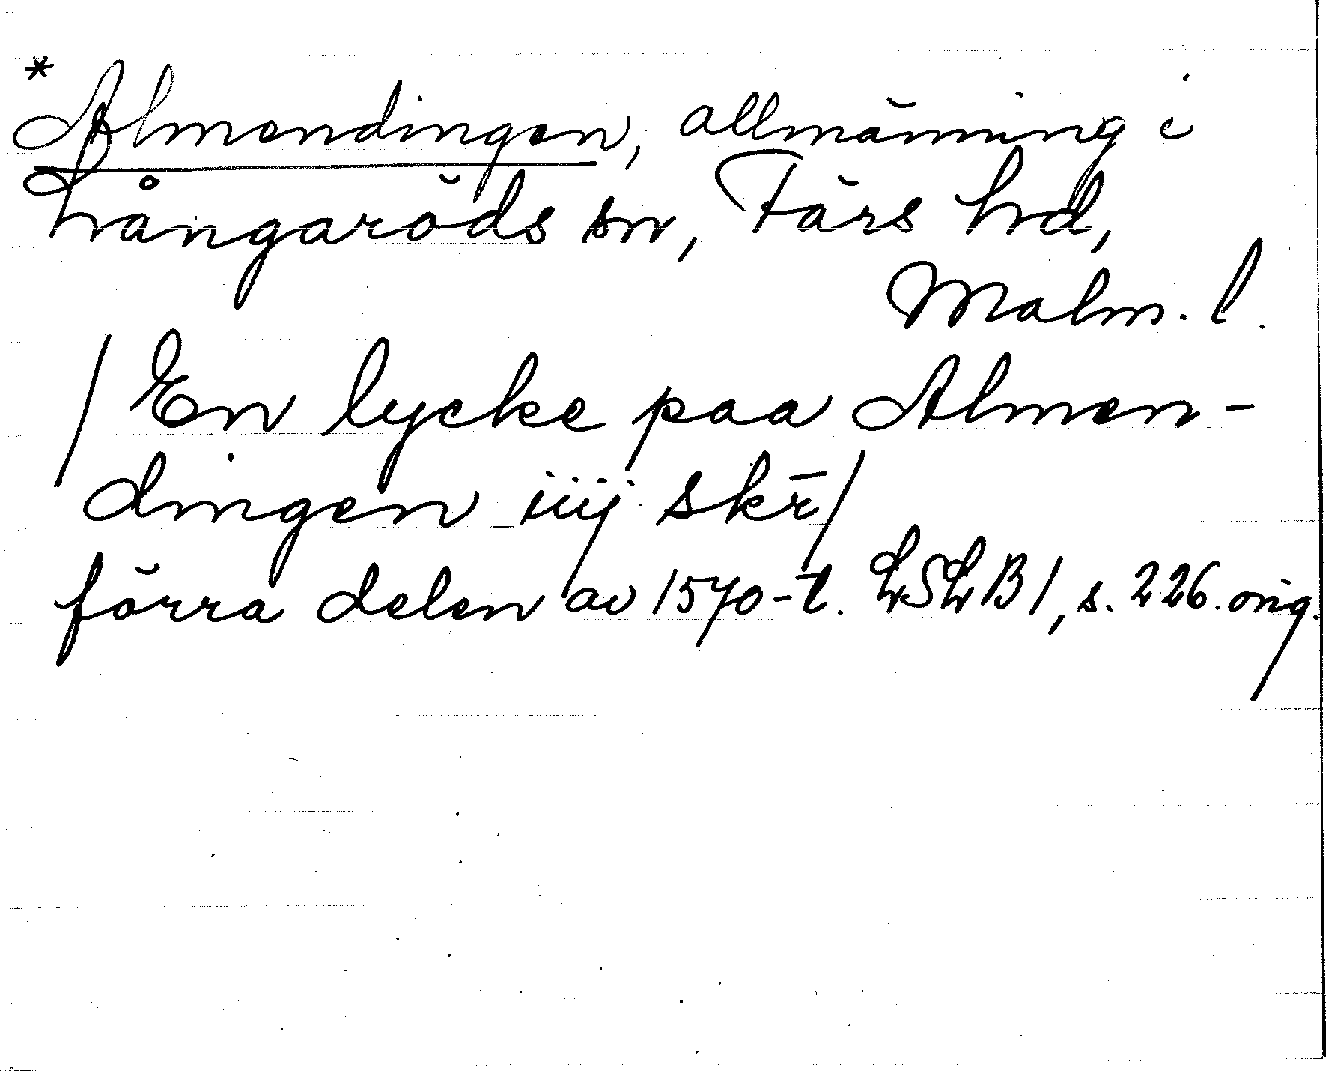 *Almendingen, allmänning i
Långaröds sn, Färs hd,
Malm. l.
/En lycke paa Almen-
dingen iiij skr̄/
förra delen av 1570-t. LSLB1, s. 226. orig.